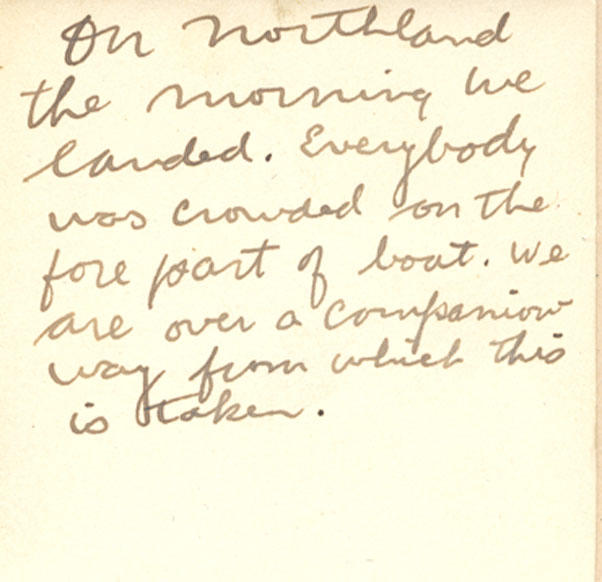 On Northland
the morning we
landed. Everybody
was crowded on the
fore part of boat. We
are over a companion
way from which this
is taken.